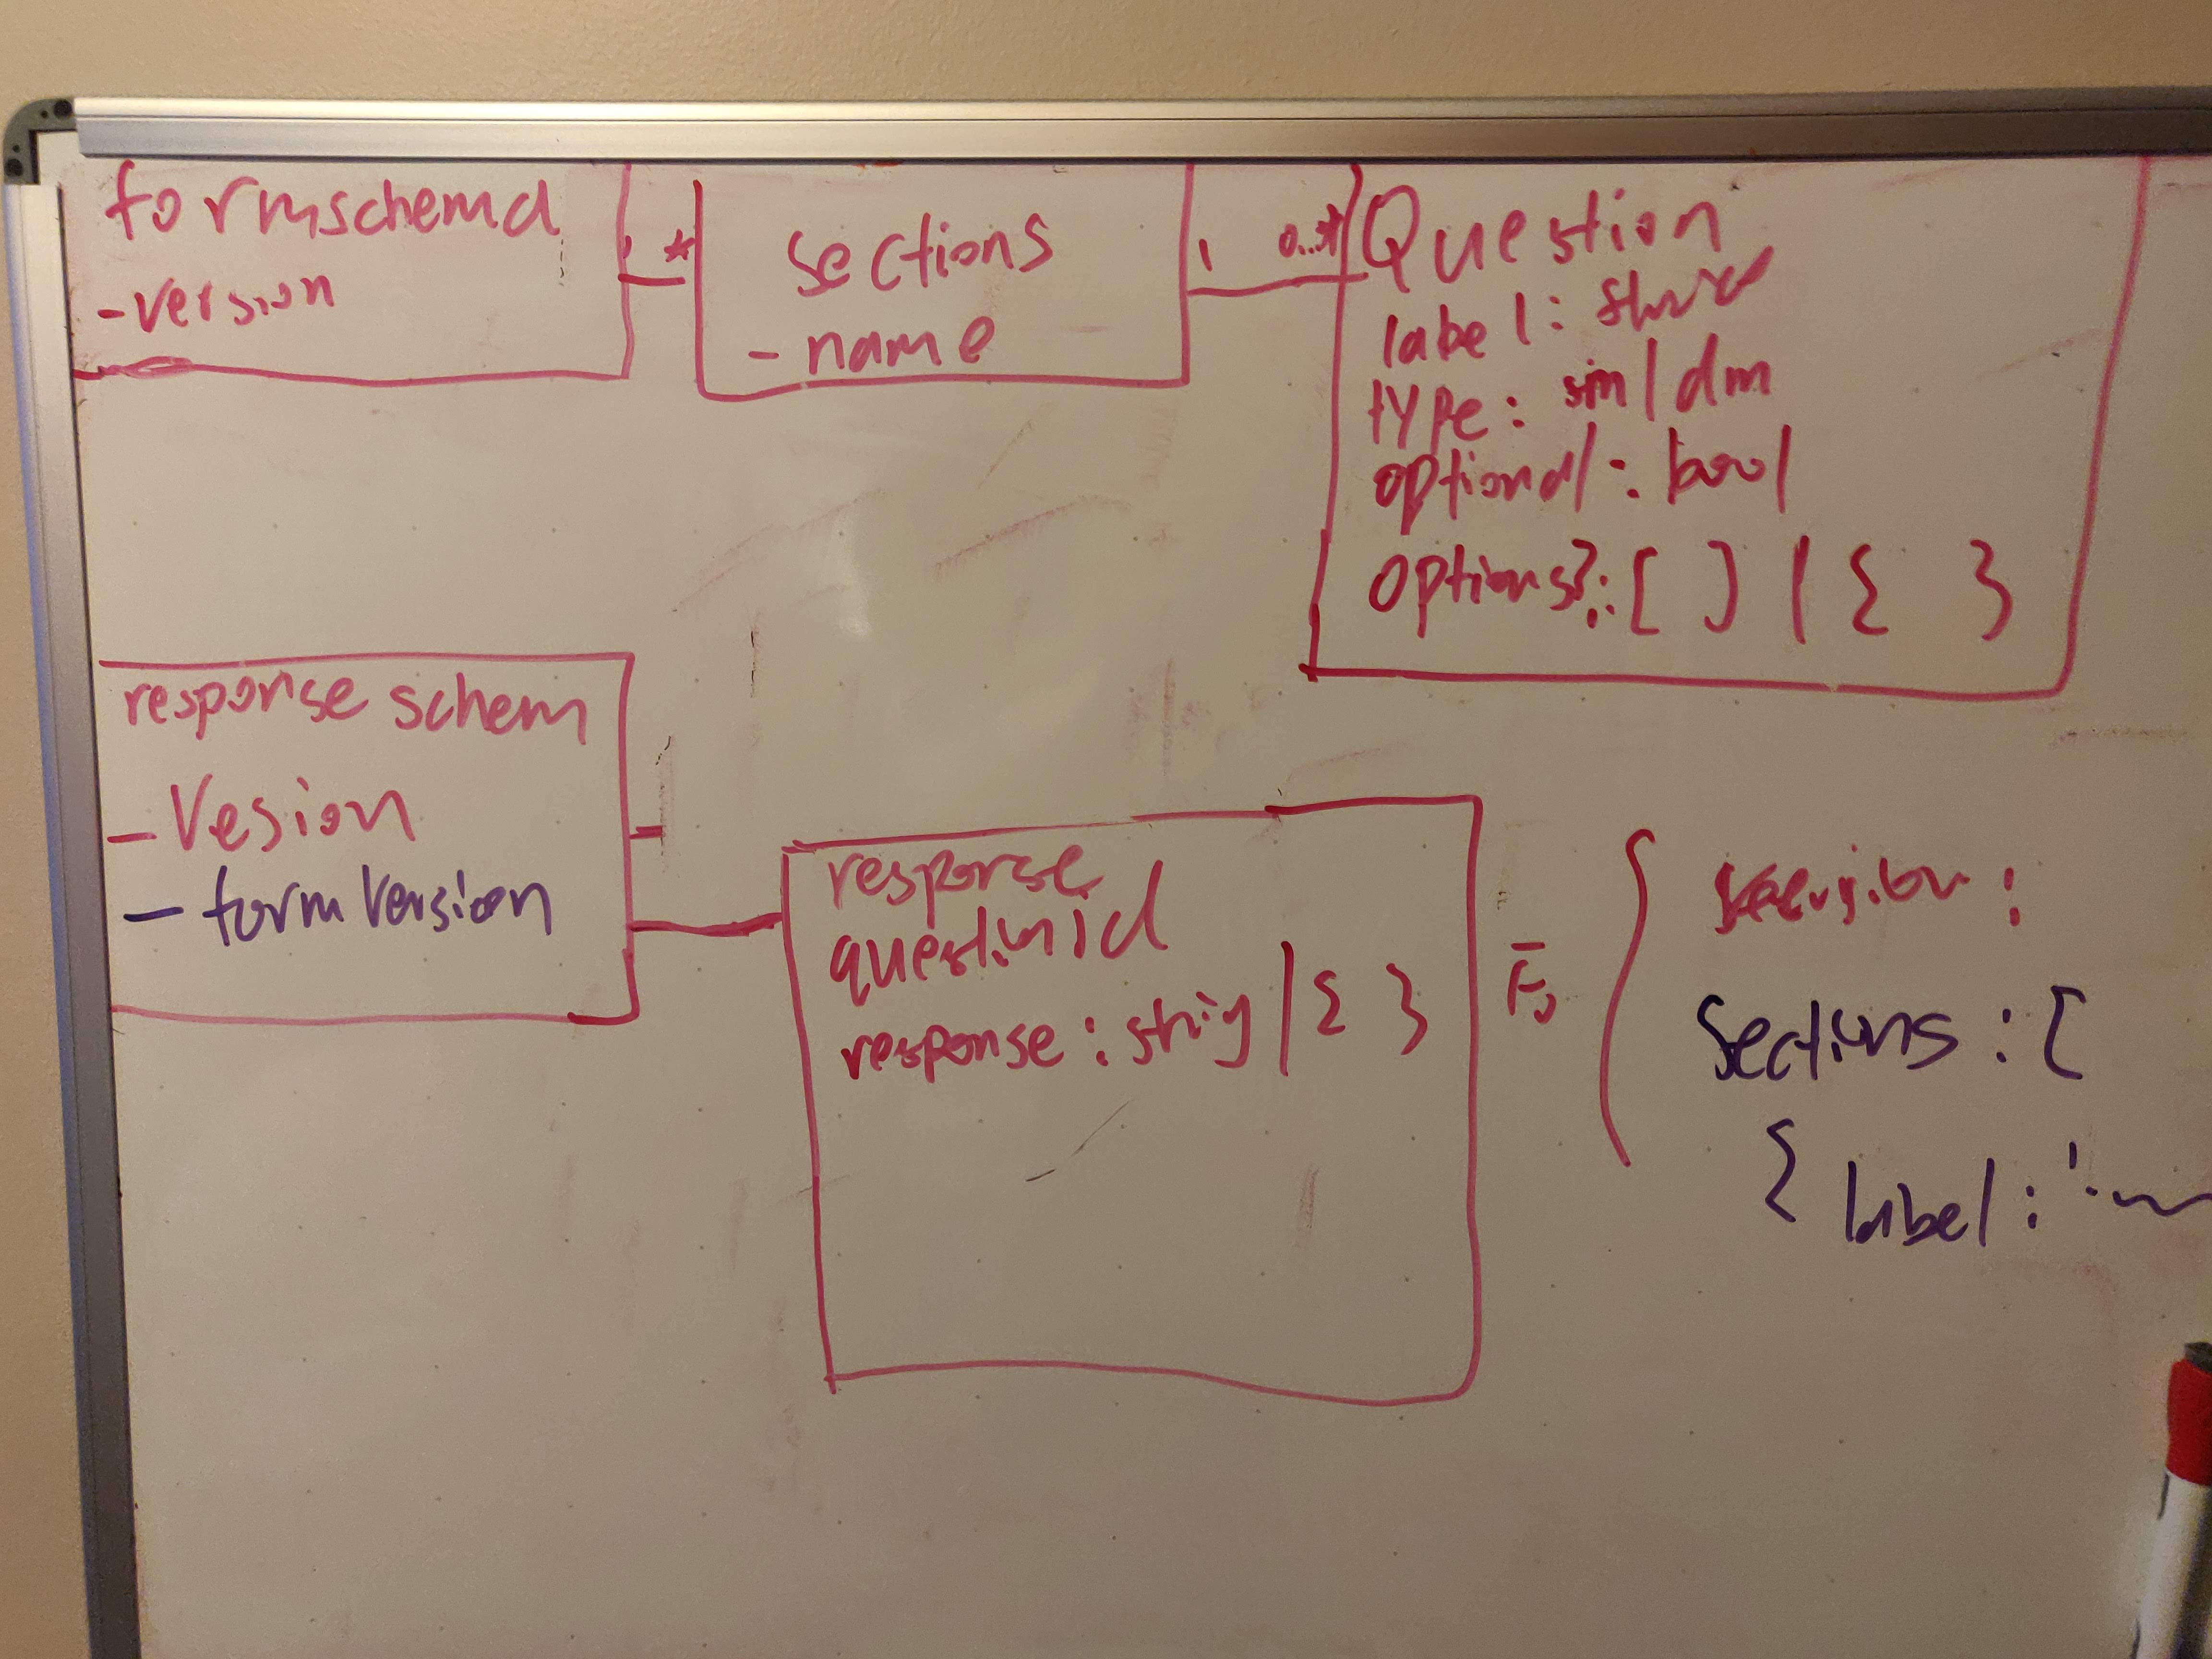 formschema
- version
1 *
sections
- name
1 0..*
Question
label:
type: sm | dm
optional: bool
options?: [ ] | { }
response schem
- Vesion
- form Version
response
questinid
response: strig | { }
Sections: [
{ label: '